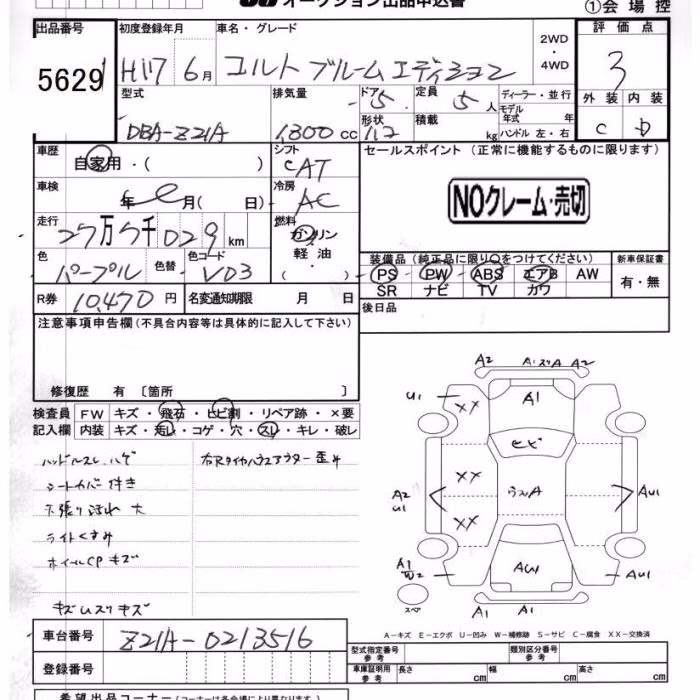 オークション出品申込書
①会場控
出品番号 初度登録年月 車名・グレード 2WD・4WD 評価点
5629 H17 6月 コルト ブルームエディション 3
型式 排気量 ドア 定員 ディーラー・並行 外装 内装
DBA-Z21A 1,300cc 5 5人 モデル年式 年 C D
形状 積載 kg ハンドル 左・右
車歴 自家用・( ) シフト CAT セールスポイント (正常に機能するものに限ります)
車検 年 月(日) 冷房 AC NOクレーム・売切
走行 27万7千029km 燃料 ガソリン 軽油・( )
装備品 (純正品に限り○をつけてください) 新車保証書
色 パープル 色替 色コード VD3 PS PW ABS エアB AW 有・無
SR ナビ TV カワ
R券 10,470円 名変通知期限 月 日 後日品
注意事項申告欄 (不具合内容等は具体的に記入して下さい)
修復歴 有〔箇所 〕
検査員 FW キズ・飛石・ヒビ割・リペア跡・×要
記入欄 内装 キズ・汚レ・コゲ・穴・スレ・キレ・破レ
ハンドルスレ、ハゲ 右Rタイヤハウスアウター歪み
シートカバー付き
天張り汚れ 大
ライトくすみ
ホイールCPキズ
キズ
A2 A1 A2
U1 XX A1
ヒビ
XX
A2 U1 A AU1
XX
A1 W2 AU1 AU1
スペア A1 A1
A-キズ E-エクボ U-凹み W-補修跡 S-サビ C-腐食 XX-交換済
車台番号 Z21A-0213516 型式指定番号 参考 類別区分番号 参考
登録番号 車庫証明用 参考 長さ cm 幅 cm 高さ cm
希望出品コーナー (コーナーは各会場により異なります)